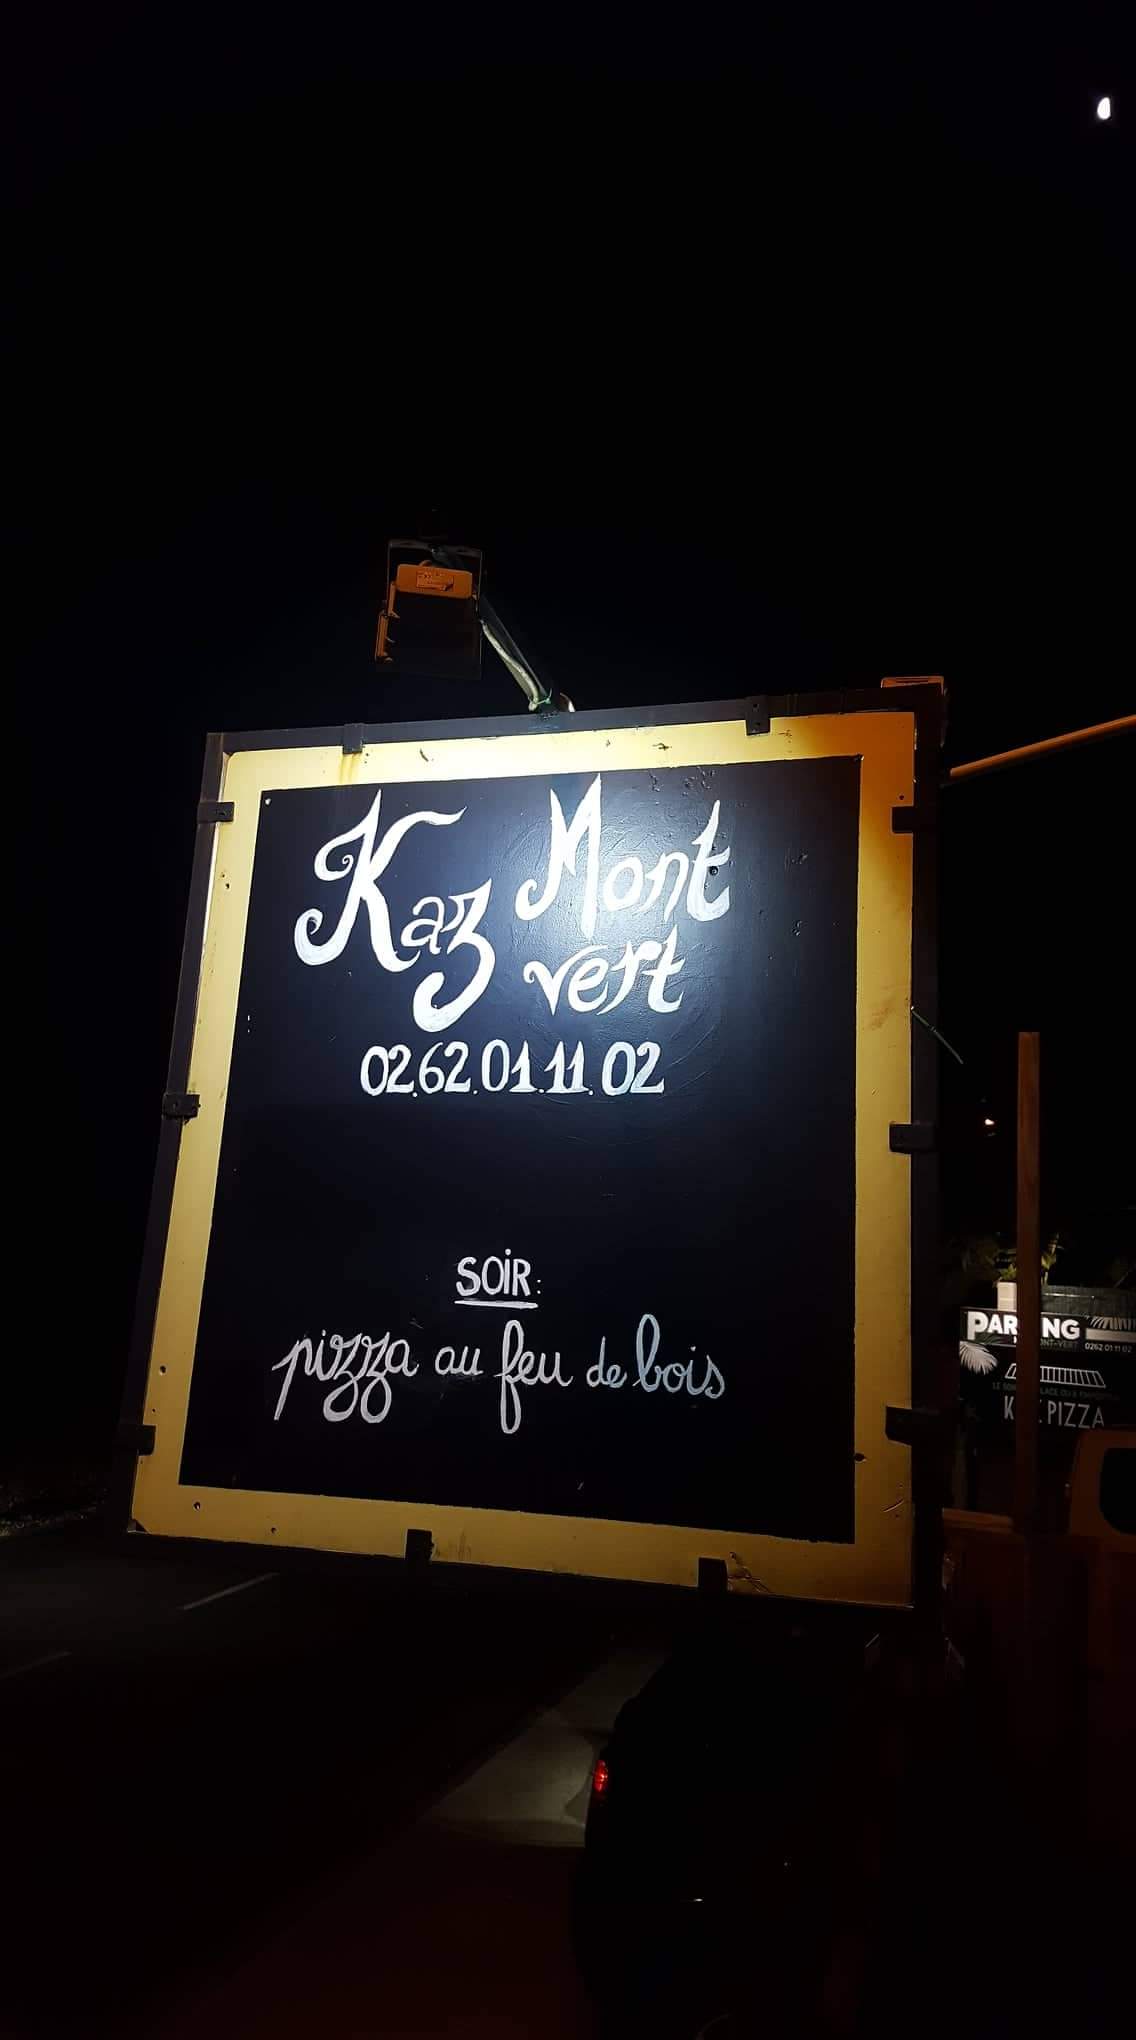 Kaz Mont
vert
02.62.01.11.02
SOIR:
pizza au feu de bois
MONT-VERT 0262 01 11 02
PIZZA